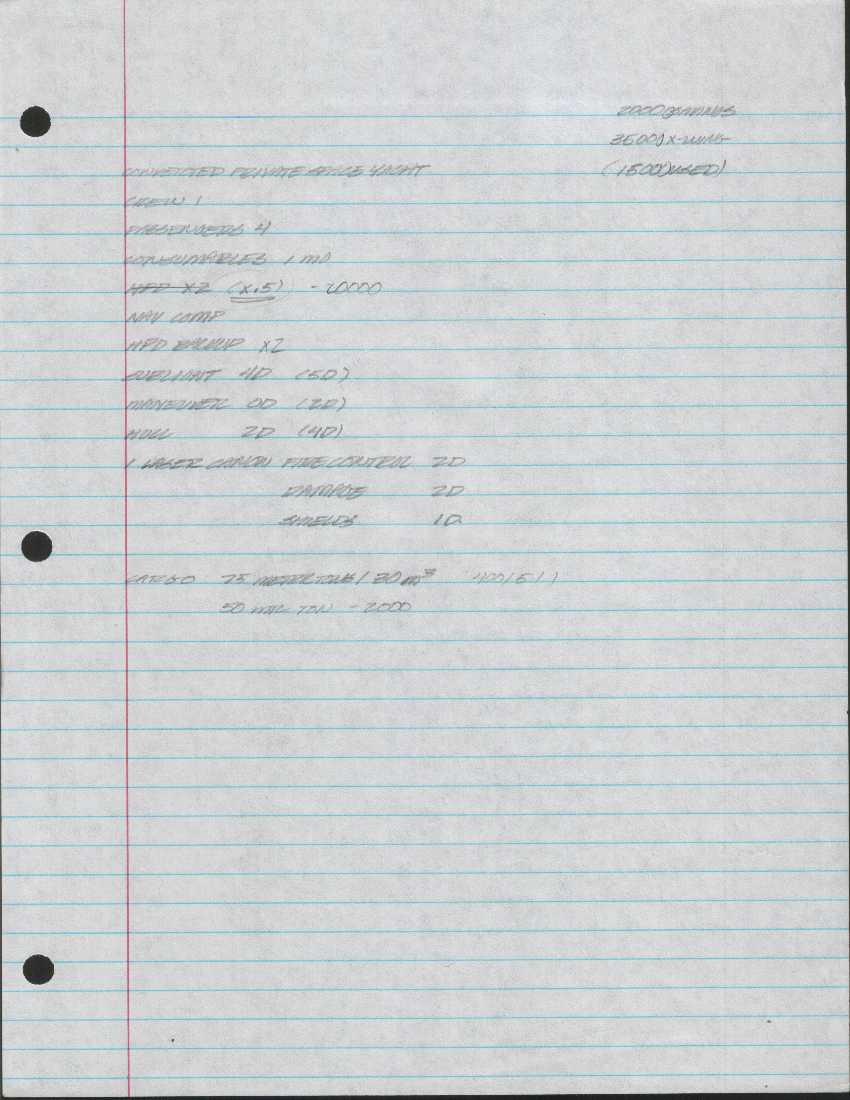 2000
3500) X-WING
(1500) USED)
CONVERTED PRIVATE SPACE YACHT
CREW 1
PASSENGERS 4
CONSUMABLES 1 MO
HPD X2 (X.5) - 20000
NAV COMP
HPD BACKUP X2
SUBLIGHT 4D (5D)
MANEUVER 0D (2D)
HULL 2D (4D)
1 LASER CANON FIRE CONTROL 2D
DAMAGE 2D
SHIELDS 1D
CARGO 75 METER TONS / 30 m³
50 TON - 2000